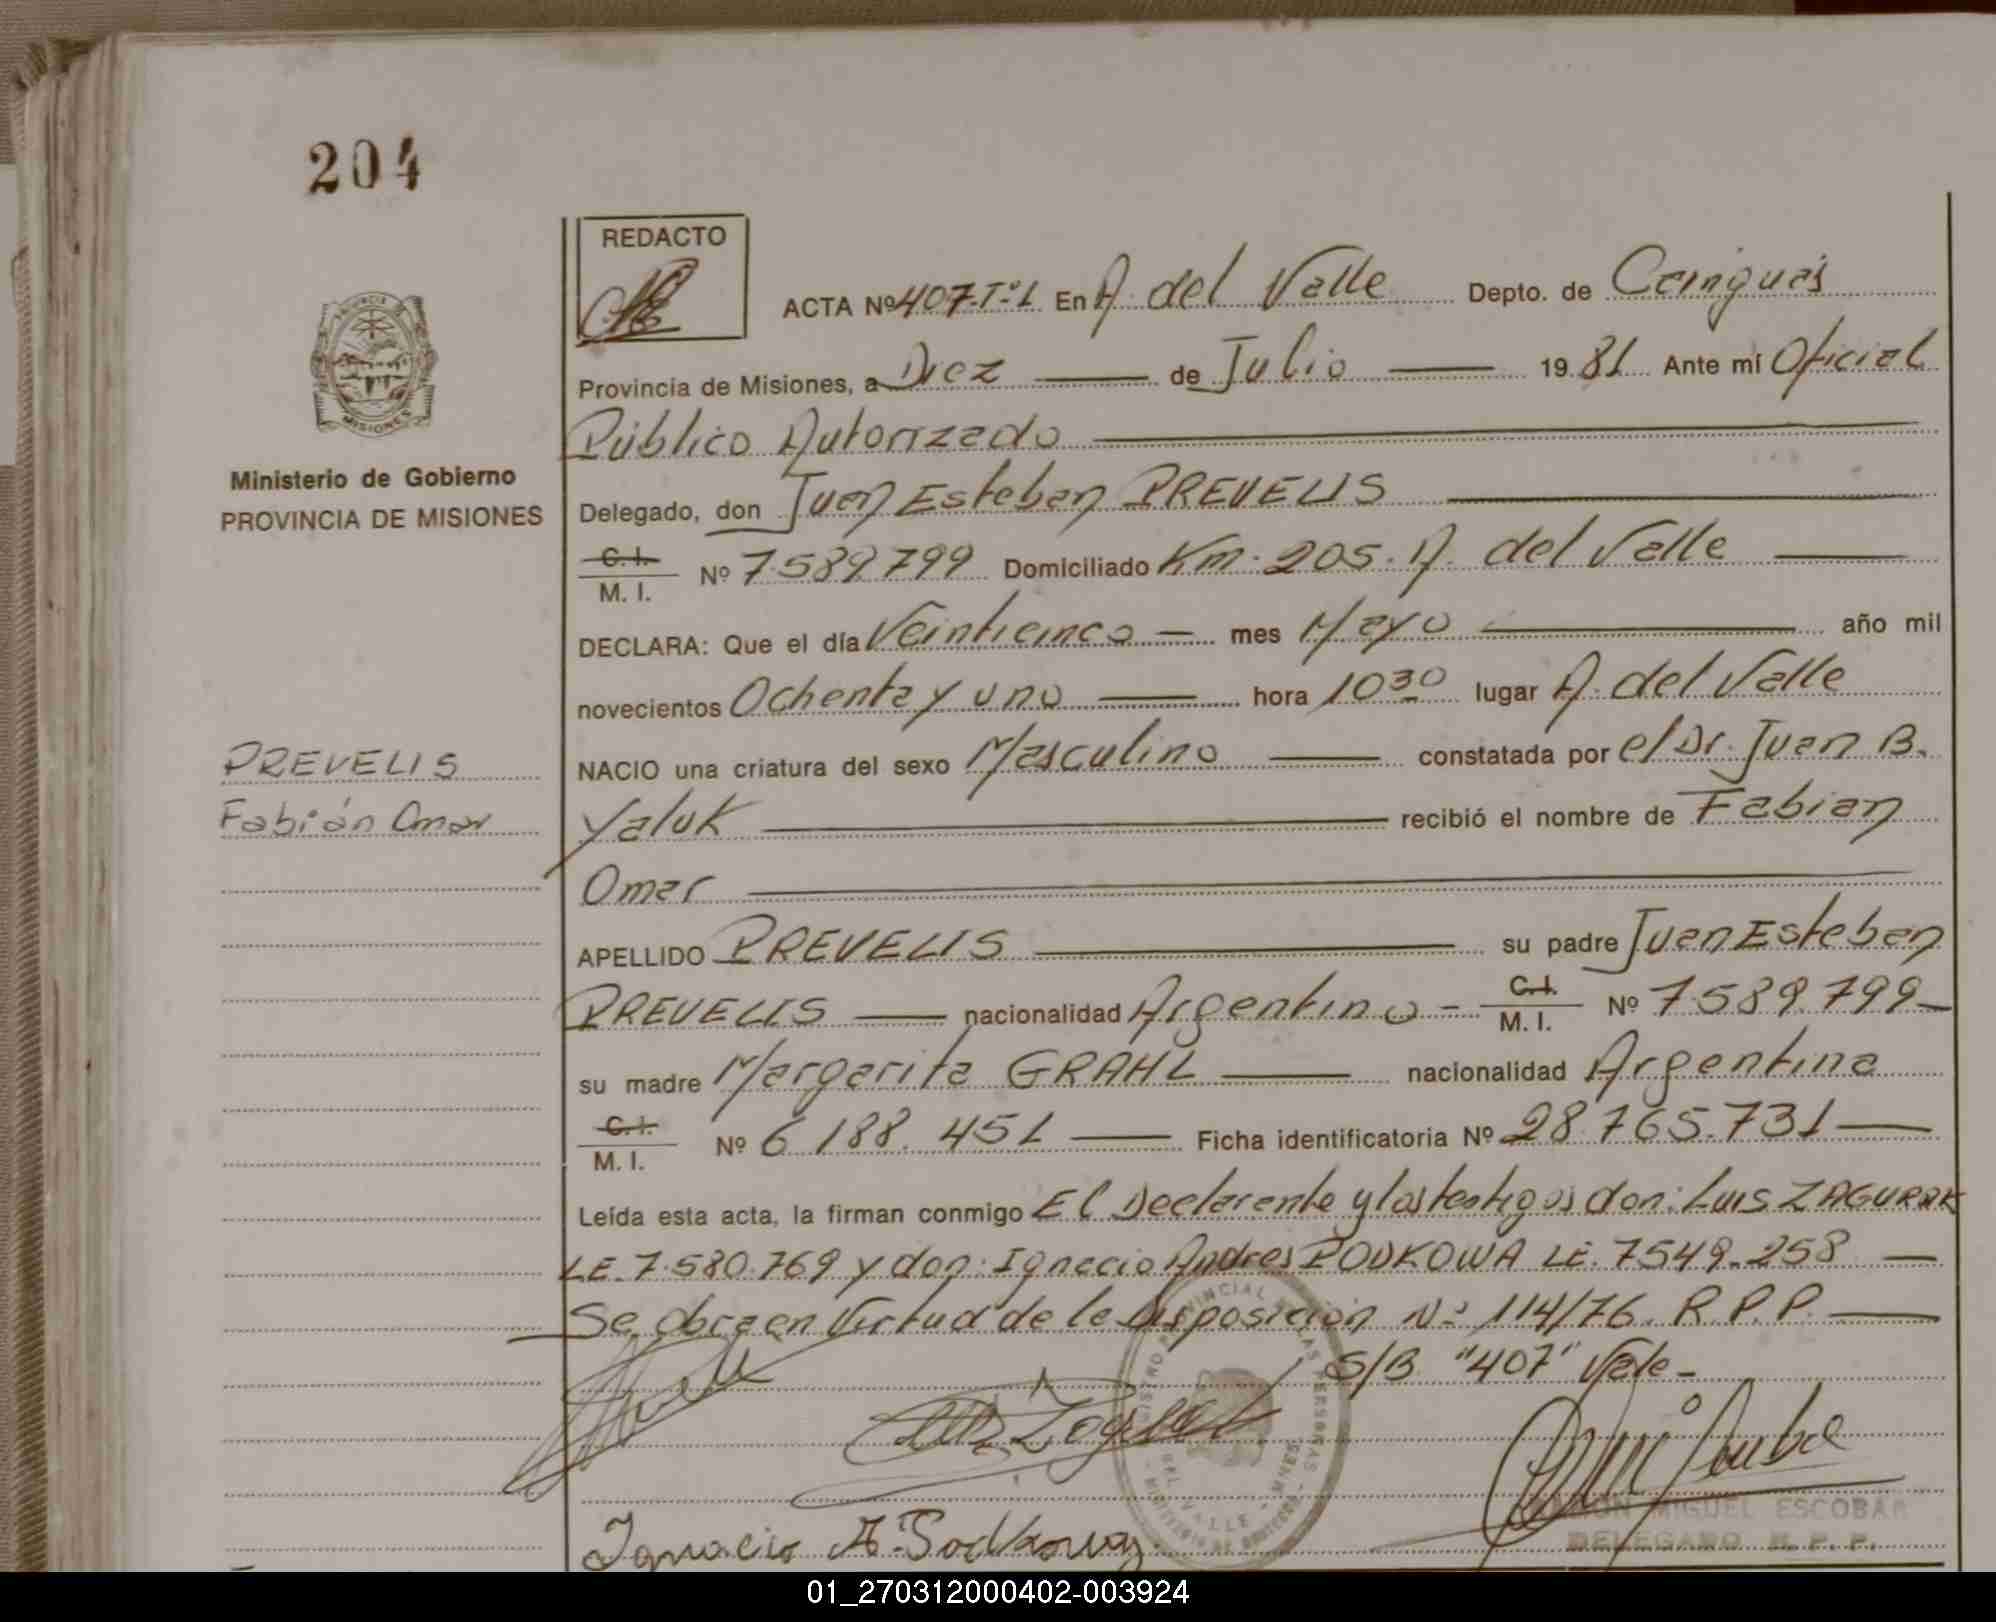 204
REDACTO
ACTA Nº 407-Tº1 En A. del Valle Depto. de Cainguás
Provincia de Misiones, a Diez de Julio 1981 Ante mí Oficial
Público Autorizado
Ministerio de Gobierno
PROVINCIA DE MISIONES
Delegado, don Juan Esteban PREVELIS
C. I.
M. I. Nº 7.589.799 Domiciliado Km. 205. A. del Valle
DECLARA: Que el día Veinticinco — mes Mayo año mil
novecientos Ochenta y uno hora 10 30 lugar A. del Valle
PREVELIS
Fabián Omar
NACIO una criatura del sexo Masculino constatada por el Dr. Juan B.
Yaluk recibió el nombre de Fabian
Omar
APELLIDO PREVELIS su padre Juan Esteban
PREVELIS — nacionalidad Argentino - C. I. M. I. Nº 7.589.799—
su madre Margarita GRAHL nacionalidad Argentina
C. I.
M. I. Nº 6.188.451 — Ficha identificatoria Nº 28.765.731—
Leída esta acta, la firman conmigo El Declarante y los testigos don: Luis ZAGURAK
LE. 7.580.769 y don: Ignacio Andres PODKOWA LE. 7.549.258 —
Se obra en Virtud de la Disposición Nº 114/76. R.P.P.
S/B "407" Vale-
Ignacio A. Podkowa
RAMÓN MIGUEL ESCOBAR
DELEGADO R. P. P.
01_270312000402-003924